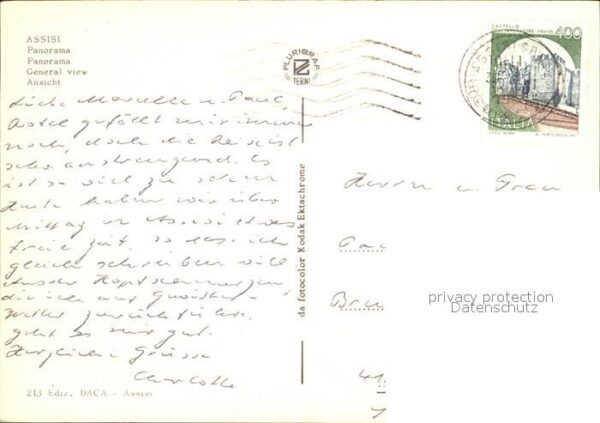 ASSISI
Panorama
Panorama
General view
Ansicht
PLURIGRAF
TERNI
CASTELLO
DELL'IMPERATORE - PRATO
400
ITALIA
Liebe Marcelle u. Paul,
gefällt mir immer
noch, doch die Reise ist
sehr anstrengend. Es
ist so viel zu sehen
Heute haben wir über
Mittag in Assisi etwas
freie Zeit, so dass ich
gleich schreiben will
Ausser Kopfschmerzen,
die ich auf Gewitter-
wetter zurückführe,
geht es mir gut.
Herzliche Grüsse
Charlotte
213 Ediz. DACA - Assisi
da fotocolor Kodak Ektachrome
Herrn u Frau
privacy protection
Datenschutz